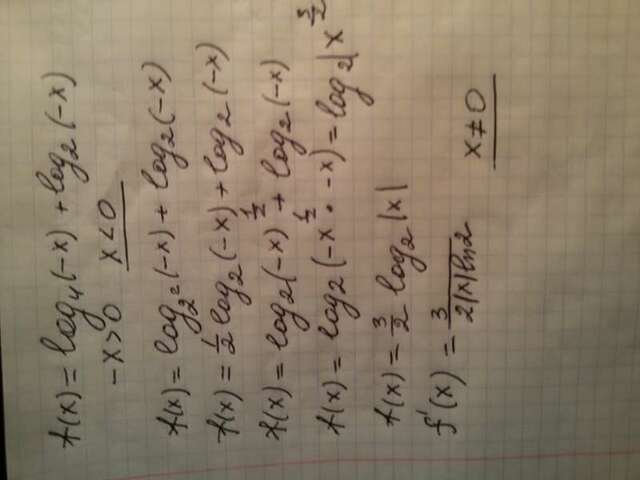 f(x) = log₄(-x) + log₂(-x)
-x>0 x<0
f(x) = log₂²(-x) + log₂(-x)
f(x) = ½ log₂(-x) + log₂(-x)
f(x) = log₂(-x)^½ + log₂(-x)
f(x) = log₂(-x^½ · -x) = log₂|x^(3/2)
f(x) = 3/2 log₂|x|
f'(x) = 3/(2|x|ln2) x≠0